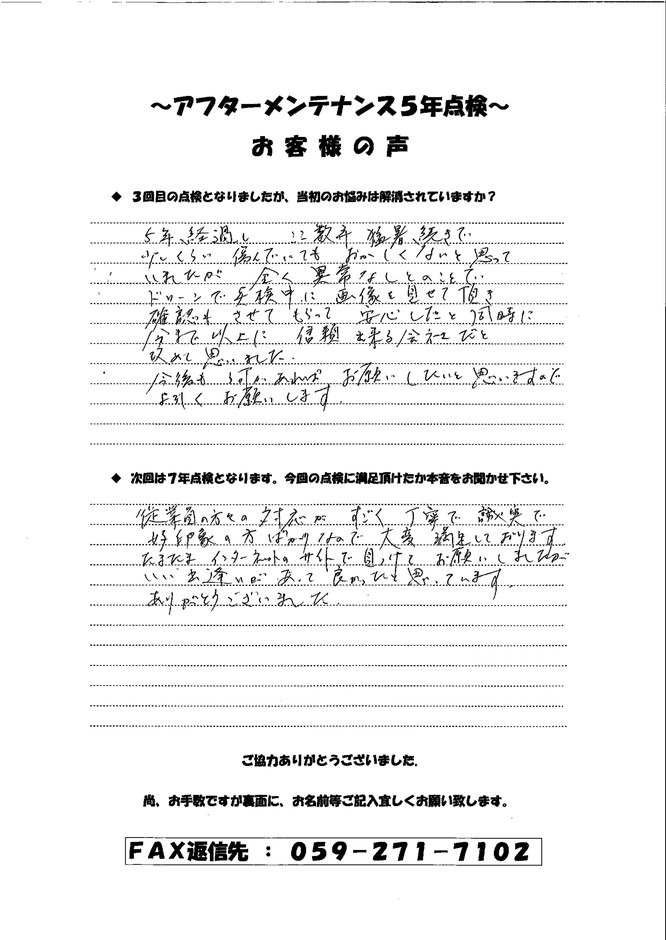 ～アフターメンテナンス5年点検～
お客様の声
◆ 3回目の点検となりましたが、当初のお悩みは解消されていますか？
5年経過し ここ数年 猛暑続きで
少しくらい 傷んでいても おかしくないと思って
いましたが 全く異常なしとのことで
ドローンで点検中に 画像を見せて頂き
確認も させてもらって 安心したと同時に
今まで以上に 信頼出来る会社だと
改めて思いました。
今後も 何かあれば お願いしたいと思いますので
よろしく お願いします。
◆ 次回は7年点検となります。今回の点検に満足頂けたか本音をお聞かせ下さい。
従業員の方々の対応が すごく 丁寧で 誠実で
好印象の方ばかりなので 大変 満足しております
たまたま インターネットのサイトで見つけて お願いしましたが
いい出逢いがあって良かったと思っています。
ありがとうございました。
ご協力ありがとうございました．
尚、お手数ですが裏面に、お名前等ご記入宜しくお願い致します。
FAX返信先 ： 059-271-7102